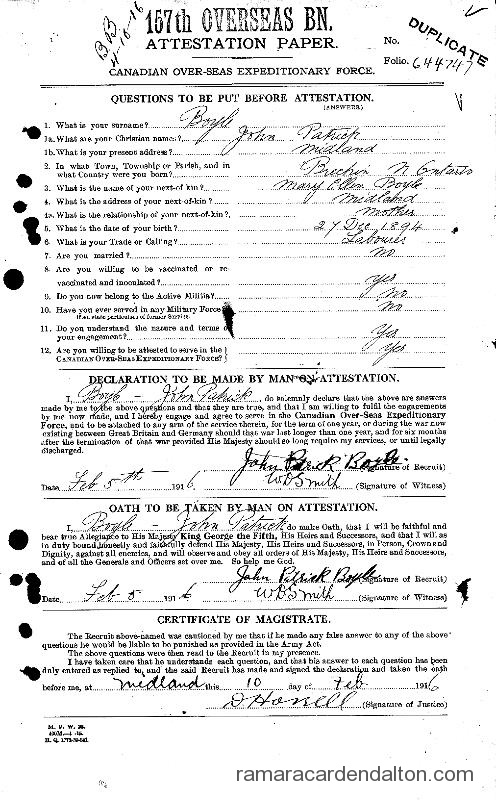 157th OVERSEAS BN.
ATTESTATION PAPER.
No.
DUPLICATE
Folio. 644747
CANADIAN OVER-SEAS EXPEDITIONARY FORCE.
QUESTIONS TO BE PUT BEFORE ATTESTATION.
(ANSWERS)
1. What is your surname? Boyle
1a. What are your Christian names? John Patrick
1b. What is your present address? Midland
2. In what Town, Township or Parish, and in
what Country were you born? Brechin N Ontario
3. What is the name of your next-of kin? Mary Ellen Boyle
4. What is the address of your next-of-kin? Midland
4a. What is the relationship of your next-of-kin? Mother
5. What is the date of your birth? 27 Dec 1894
6. What is your Trade or Calling? Labourer
7. Are you married? No
8. Are you willing to be vaccinated or re-
vaccinated and inoculated? Yes
9. Do you now belong to the Active Militia? No
10. Have you ever served in any Military Force? No
If so, state particulars of former Service.
11. Do you understand the nature and terms of
your engagement? Yes
12. Are you willing to be attested to serve in the
CANADIAN OVER-SEAS EXPEDITIONARY FORCE? Yes
DECLARATION TO BE MADE BY MAN ON ATTESTATION.
I, Boyle - John Patrick, do solemnly declare that the above are answers
made by me to the above questions and that they are true, and that I am willing to fulfil the engagements
by me now made, and I hereby engage and agree to serve in the Canadian Over-Seas Expeditionary
Force, and to be attached to any arm of the service therein, for the term of one year, or during the war now
existing between Great Britain and Germany should that war last longer than one year, and for six months
after the termination of that war provided His Majesty should so long require my services, or until legally
discharged.
John Patrick Boyle (Signature of Recruit)
Date Feb 5th 1916 W D Smith (Signature of Witness)
OATH TO BE TAKEN BY MAN ON ATTESTATION.
I, Boyle John Patrick do make Oath, that I will be faithful and
bear true Allegiance to His Majesty King George the Fifth, His Heirs and Successors, and that I will as
in duty bound honestly and faithfully defend His Majesty, His Heirs and Successors, in Person, Crown and
Dignity, against all enemies, and will observe and obey all orders of His Majesty, His Heirs and Successors,
and of all the Generals and Officers set over me. So help me God.
John Patrick Boyle (Signature of Recruit)
Date Feb 5 1916 W D Smith (Signature of Witness)
CERTIFICATE OF MAGISTRATE.
The Recruit above-named was cautioned by me that if he made any false answer to any of the above
questions he would be liable to be punished as provided in the Army Act.
The above questions were then read to the Recruit in my presence.
I have taken care that he understands each question, and that his answer to each question has been
duly entered as replied to, and the said Recruit has made and signed the declaration and taken the oath
before me, at Midland this 10 day of Feb 1916
(Signature of Justice)
M. F. W. 23.
ramaracardendalton.com